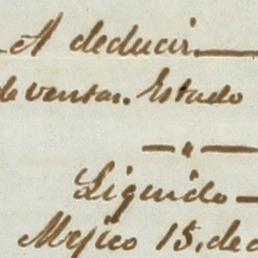 A deducir.
de ventas. Estado
— " —
Liquido —
Mejico 15. de